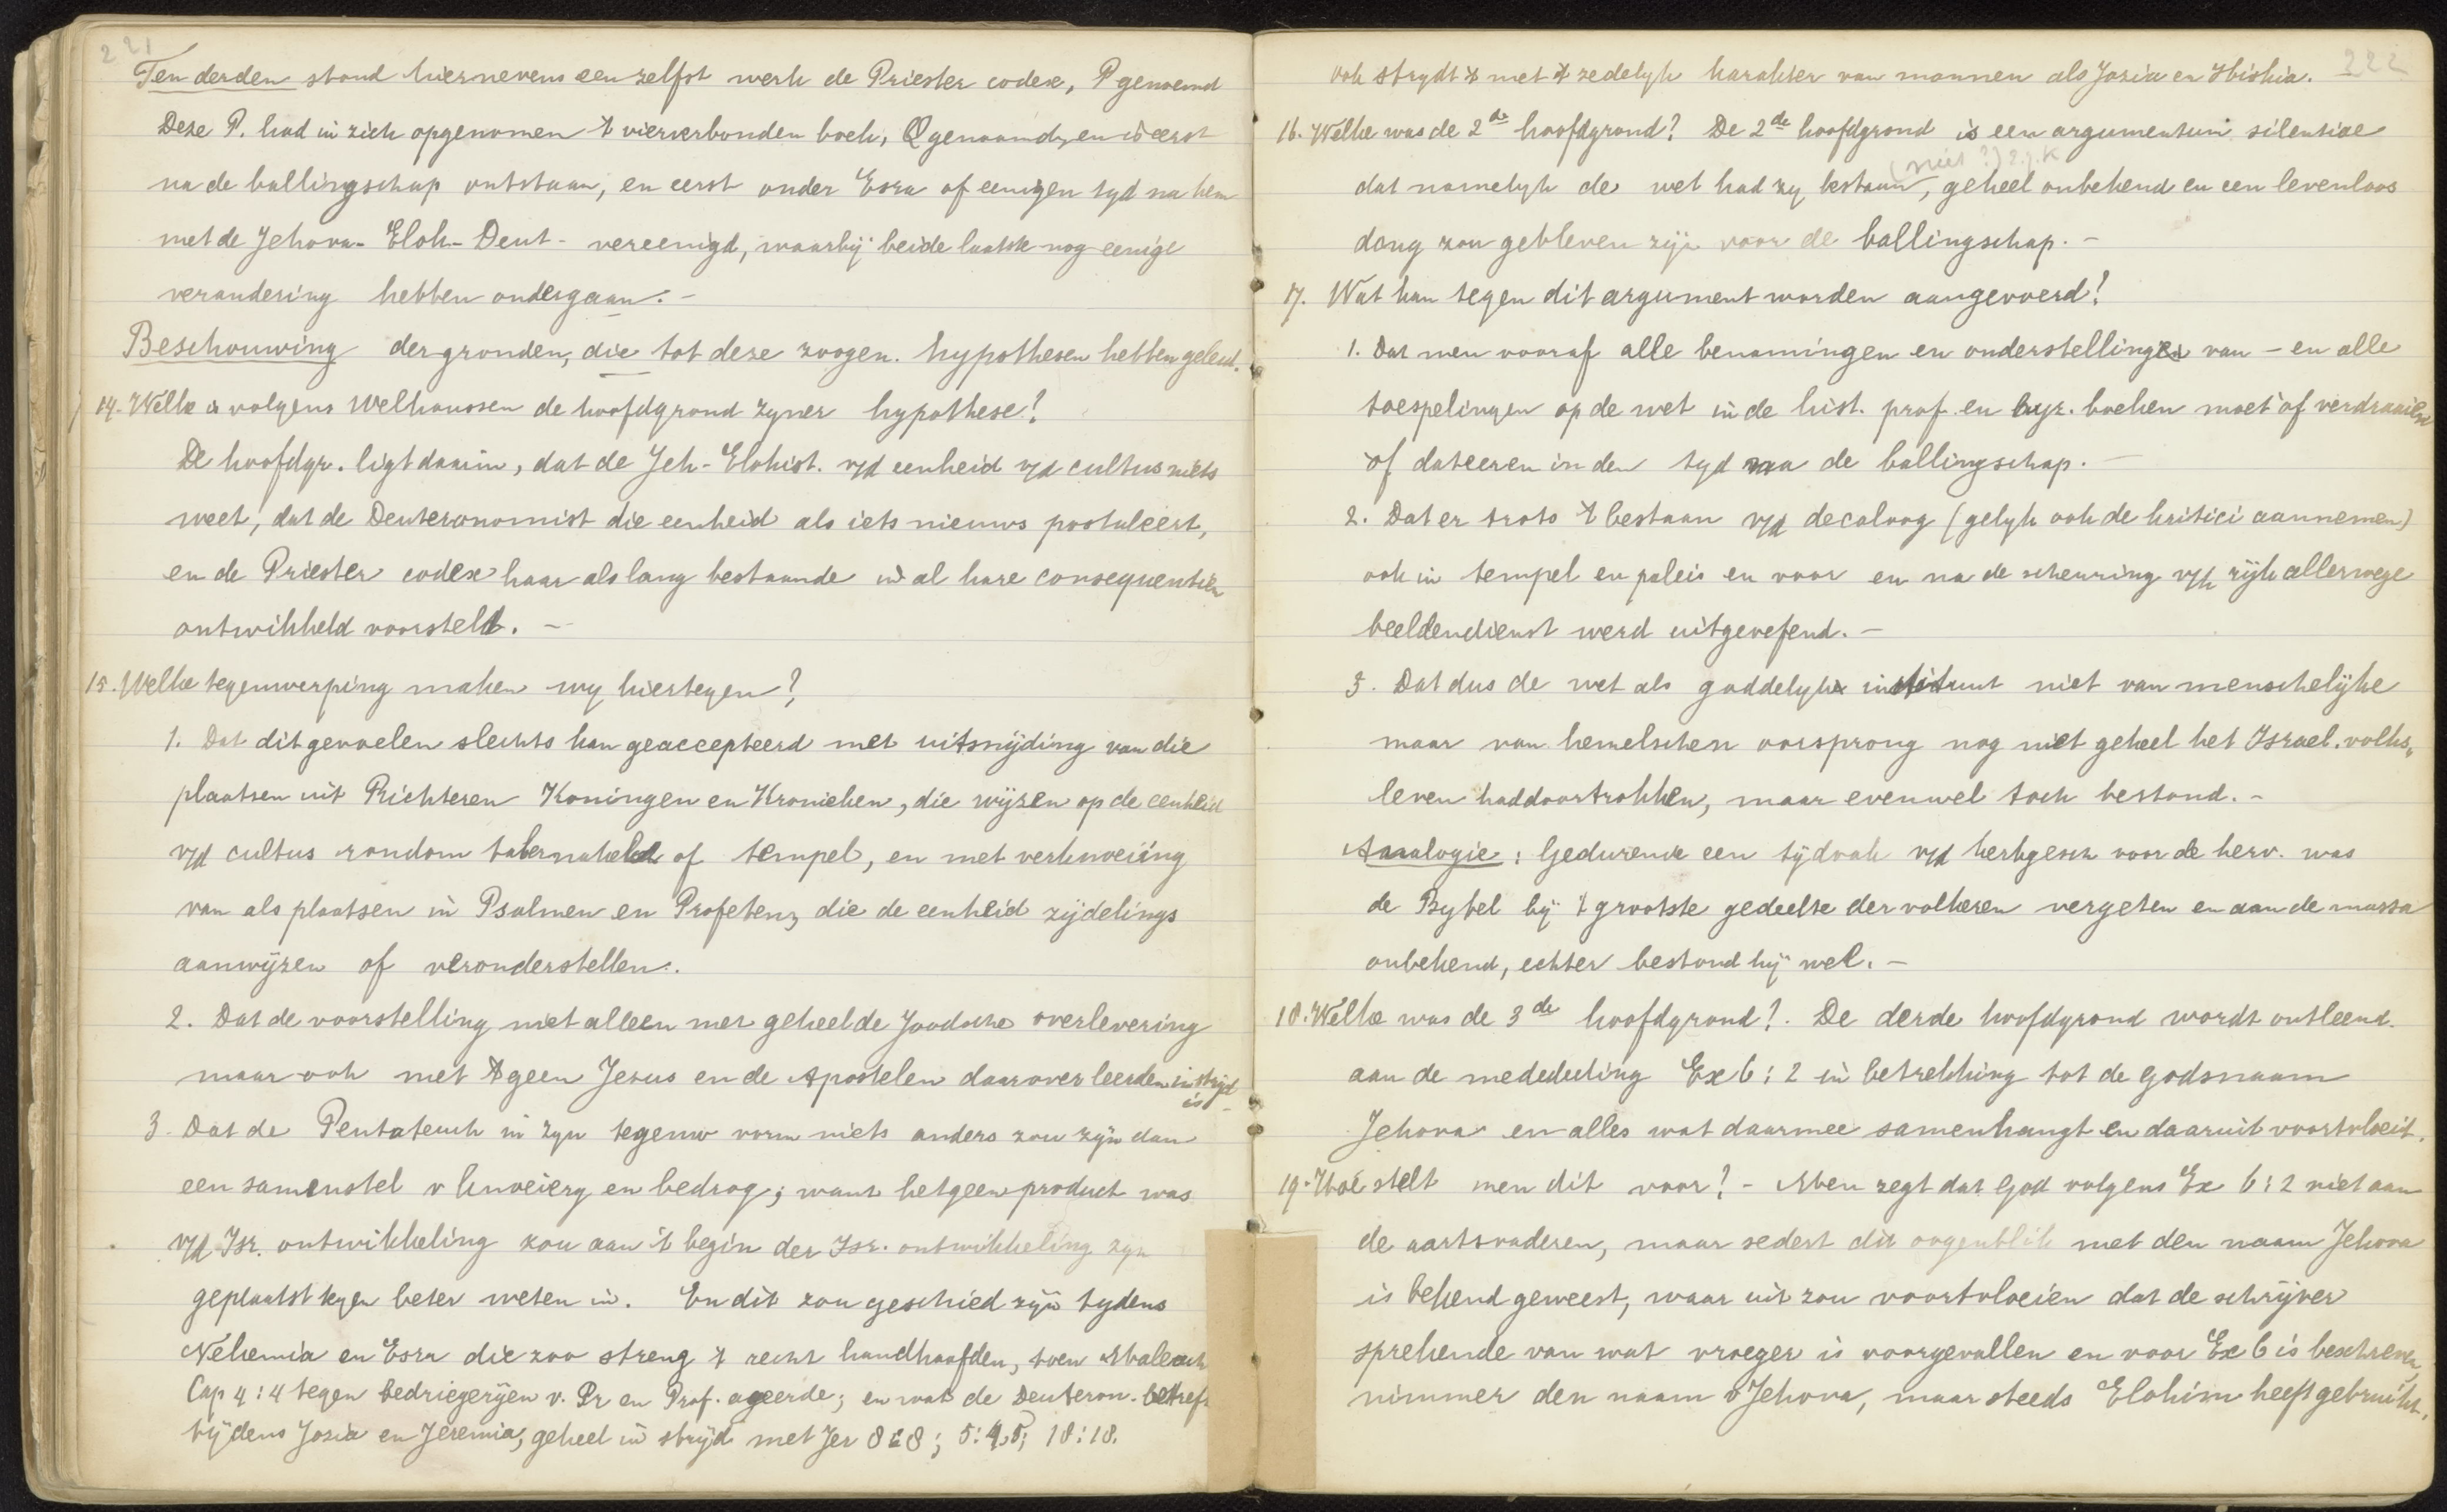 221
Ten derden stond hiernevens een zelfst werk de Priester codex, P genoemd
Deze P. had in zich opgenomen 't vierverbonden boek, Q genaamd, en is eerst
na de ballingschap ontstaan, en eerst onder Esra of eenigen tyd na hem
met de Jehova- Eloh- Deut- vereenigd, waarbij beide laatste nog eenige
verandering hebben ondergaan. -
Beschouwing der gronden, die tot deze zoogen. hypothesen hebben geleid.
14. Welke is volgens Welhaussen de hoofdgrond zyner hypothese?
De hoofdgr. ligt daarin, dat de Jeh-Elohist. v/d eenheid v/d cultus niets
weet, dat de Deuteronomist die eenheid als iets nieuws postuleert,
en de Priester codex haar als lang bestaande in al hare consequentiën
ontwikkeld voorstelt. -
15. Welke tegenwerping maken wy hiertegen?
1. Dat dit gevoelen slechts kan geaccepteerd met uitsnijding van die
plaatsen uit Richteren Koningen en Kronieken, die wijzen op de eenheid
v/d cultus rondom tabernakel of tempel, en met verknoeiing
van als plaatsen in Psalmen en Profeten, die de eenheid zijdelings
aanwijzen of veronderstellen.
2. Dat de voorstelling niet alleen met geheel de Joodsche overlevering
maar ook met 't geen Jesus en de Apostelen daarover leerden in strijd
is -
3. Dat de Pentateuch in zyn tegenw vorm niets anders zou zyn dan
een samenstel v knoeierij en bedrog; want hetgeen product was
v/d Isr. ontwikkeling zou aan 't begin der Isr. ontwikkeling zyn
geplaatst tegen beter weten in. En dit zou geschied zijn tydens
Nehemia en Esra die zoo streng 't recht handhaafden, toen Maleach
Cap 4:4 tegen bedriegerijen v. Pr en Prof. ageerde; en wat de Deuteron. betreft
tijdens Josia en Jeremia, geheel in strijd met Jer 8:8; 5:45; 18:18.
222
ook strydt 't met 't zedelyk karakter van mannen als Josia en Hiskia.
16. Welke was de 2de hoofdgrond? De 2de hoofdgrond is een argumentum silentiae
(niet?) Z.J.K
dat namelyk de wet had zy bestaan, geheel onbekend en een levenloos
dang zou gebleven zijn voor de ballingschap. -
17. Wat kan tegen dit argument worden aangevoerd?
1. Dat men vooraf alle benamingen en onderstellingen van - en alle
toespelingen op de wet in de hist. prof. en lyr. boeken moet of verdraaien
of dateeren in den tyd na de ballingschap. -
2. Dat er trots 't bestaan v/d decaloog (gelyk ook de kritici aannemen)
ook in tempel en paleis en voor en na de scheuring v/h rijk allerwege
beeldendienst werd uitgeoefend. -
3. Dat dus de wet als goddelyk instituut niet van menschelijke
maar van hemelschen oorsprong nog niet geheel het Israel. volks„
leven had doortrokken, maar evenwel toch bestond. -
Analogie: Gedurende een tijdvak v/d kerkgesch voor de herv. was
de Bybel bij 't grootste gedeelte der volkeren vergeten en aan de massa
onbekend, echter bestond hij wel. -
18. Welke was de 3de hoofdgrond? De derde hoofdgrond wordt ontleend
aan de mededeeling Ex 6:2 in betrekking tot de godsnaam
Jehova en alles wat daarmee samenhangt en daaruit voortvloeit.
19. Hoe stelt men dit voor? - Men zegt dat God volgens Ex 6:2 niet aan
de aartsvaderen, maar sedert dit oogenblik met den naam Jehova
is bekend geweest, waar uit zou voortvloeien dat de schrijver
sprekende van wat vroeger is voorgevallen en voor Ex 6 is beschreven,
nimmer den naam Jehova, maar steeds Elohim heeft gebruikt.